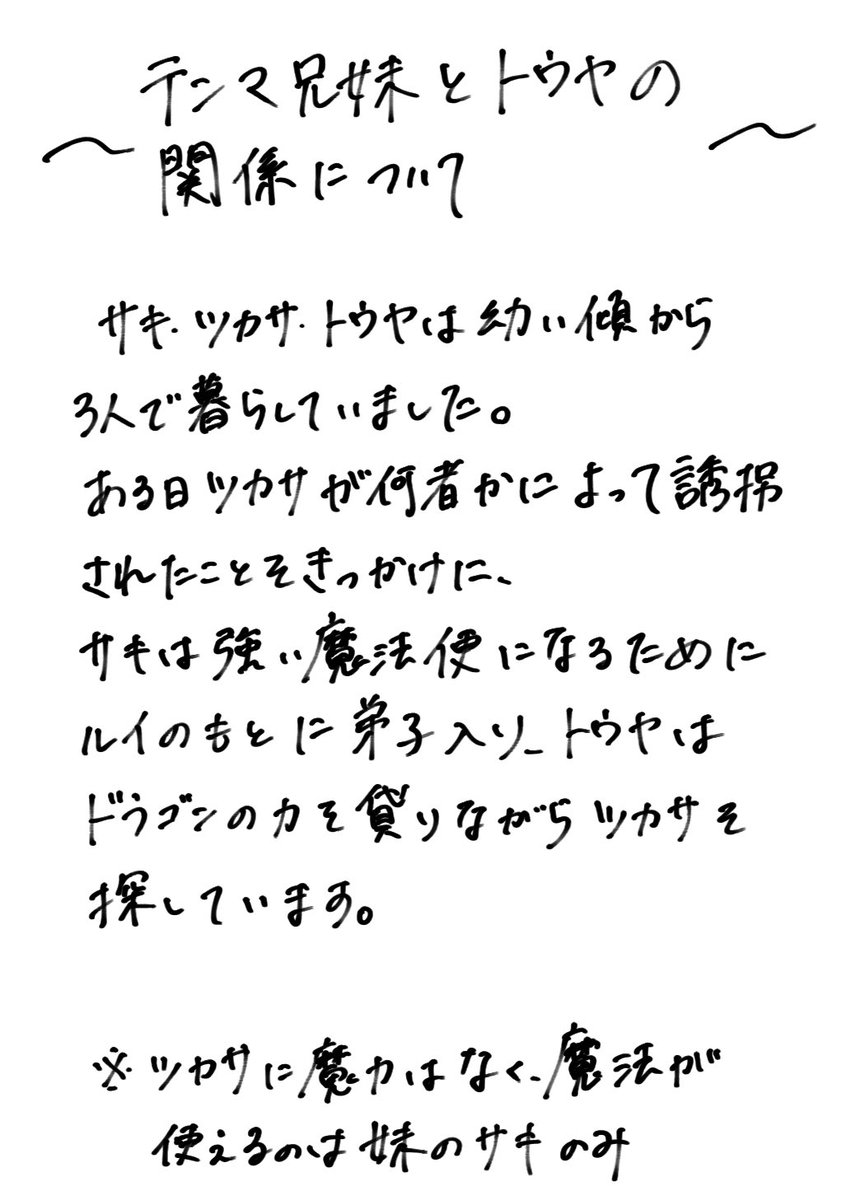 テンマ兄妹とトウヤの
〜 関係について 〜
サキ・ツカサ・トウヤは幼い傾から
3人で暮らしていました。
ある日ツカサが何者かによって誘拐
されたことをきっかけに、
サキは強い魔法使になるために
ルイのもとに弟子入り、トウヤは
ドラゴンの力を貸りながらツカサを
探しています。
※ツカサに魔力はなく、魔法が
使えるのは妹のサキのみ